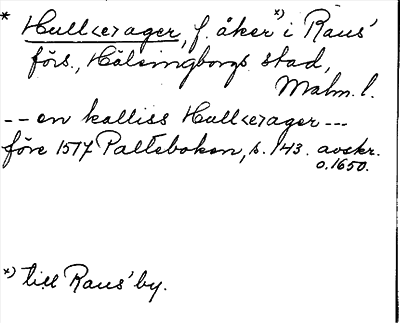 * Hull<e>ager, f. åker *) i Raus'
förs., Hälsingborgs stad,
Malm. l.
-- en kalliss Hull<e>ager ---
före 1517 Palteboken, s. 143. avskr.
o. 1650.
*) till Raus' by.